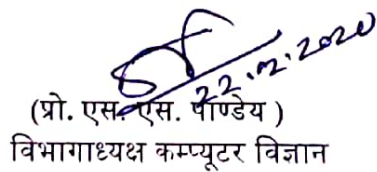 22.12.2020
(प्रो. एस. एस. पाण्डेय )
विभागाध्यक्ष कम्प्यूटर विज्ञान